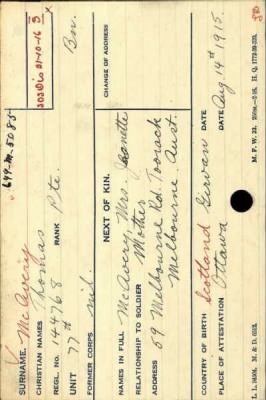 649-M-5085
SURNAME. McAvery 3
SOS Dis 31-10-16
CHRISTIAN NAMES Thomas
REGL. NO. 144768 RANK Pte.
UNIT 77th Bn.
FORMER CORPS nil.
CHANGE OF ADDRESS
NEXT OF KIN.
NAMES IN FULL McAvery, Mrs. Jeanette
RELATIONSHIP TO SOLDIER Mother
ADDRESS 59 Melbourne Rd. Toorack
Melbourne, Aust.
COUNTRY OF BIRTH Scotland Girvan DATE
PLACE OF ATTESTATION Ottawa DATE Aug 14th 1915.
L. L. 94894. M. & D. 6512. M. F. W. 22. H. Q. 1772-39-339.